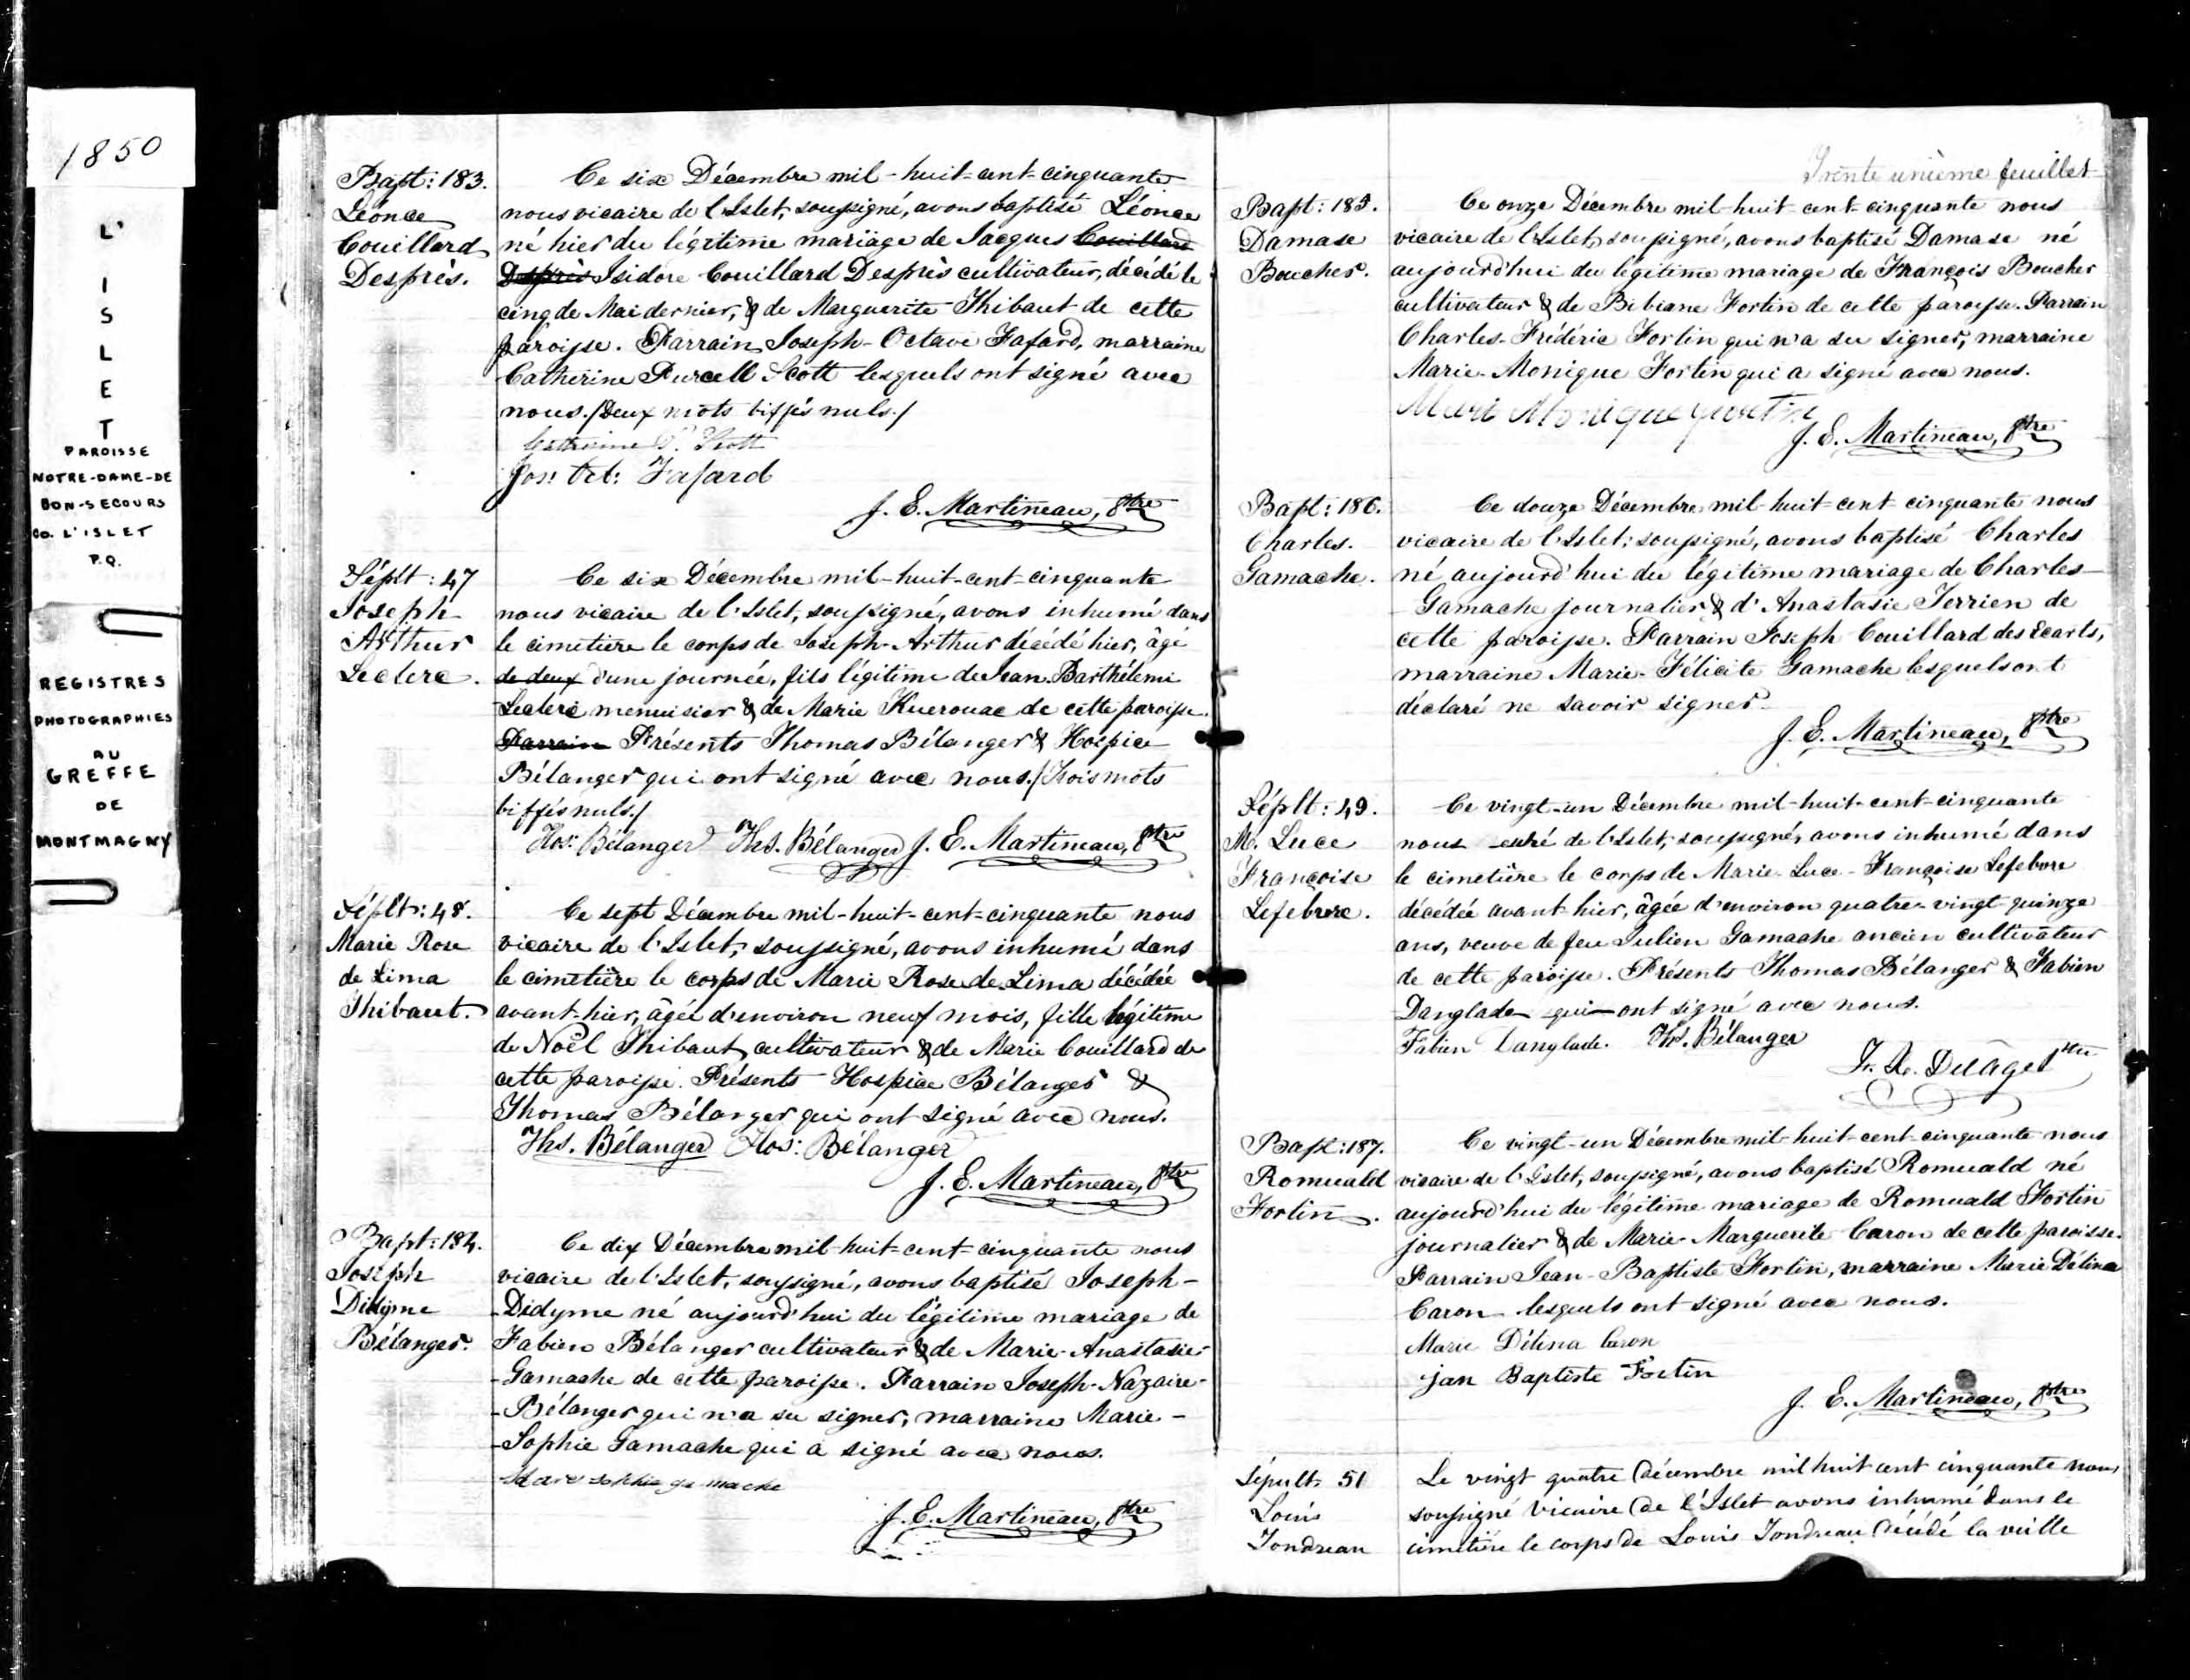 1850
L'
I
S
L
E
T
PAROISSE
NOTRE-DAME-DE
BON-SECOURS
CO. L'ISLET
P.Q.
REGISTRES
PHOTOGRAPHIES
AU
GREFFE
DE
MONTMAGNY
Bapt: 183.
Léonce
Couillard
Després.
Ce six Décembre mil-huit-cent-cinquante
nous vicaire de l'Islet, soussigné, avons baptisé Léonce
né hier du légitime mariage de Jacques Couillard
Després Isidore Couillard Després cultivateur, décédé le
cinq de Mai dernier, & de Marguerite Thibaut de cette
paroisse. Parrain Joseph-Octave Fafard, marraine
Catherine Purcell Scott lesquels ont signé avec
nous./Deux mots biffés nuls./
Catherine P. Scott
Jos: Oct: Fafard
J. E. Martineau, Ptre
Séplt: 47
Joseph
Arthur
Leclerc.
Ce six Décembre mil-huit-cent-cinquante
nous vicaire de l'Islet, soussigné, avons inhumé dans
le cimetière le corps de Joseph-Arthur décédé hier, âgé
de deux d'une journée, fils légitime de Jean Barthélemi
Leclerc menuisier & de Marie Kuerouac de cette paroisse.
Parrain Présents Thomas Bélanger & Hospice
Bélanger qui ont signé avec nous./Trois mots
biffés nuls./
Hos: Bélanger Ths. Bélanger J. E. Martineau, Ptre
Séplt: 48.
Marie Rose
de Lima
Thibaut.
Ce sept Décembre mil-huit-cent-cinquante nous
vicaire de l'Islet, soussigné, avons inhumé dans
le cimetière le corps de Marie Rose de Lima décédée
avant-hier, âgée d'environ neuf mois, fille légitime
de Noël Thibaut cultivateur & de Marie Couillard de
cette paroisse. Présents Hospice Bélanger &
Thomas Bélanger qui ont signé avec nous.
Ths. Bélanger Hos: Bélanger
J. E. Martineau, Ptre
Bapt: 184.
Joseph
Didyme
Bélanger.
Ce dix Décembre mil-huit-cent-cinquante nous
vicaire de l'Islet, soussigné, avons baptisé Joseph-
-Didyme né aujourd'hui du légitime mariage de
Fabien Bélanger cultivateur & de Marie-Anastasie-
-Gamache de cette paroisse. Parrain Joseph-Nazaire-
-Bélanger qui n'a su signer, marraine Marie-
-Sophie Gamache qui a signé avec nous.
Mare sophie ga mache
J. E. Martineau, Ptre
Trente unième feuillet
Bapt: 185.
Damase
Boucher.
Ce onze Décembre mil-huit-cent-cinquante nous
vicaire de l'Islet, soussigné, avons baptisé Damase né
aujourd'hui du légitime mariage de François Boucher
cultivateur & de Bibiane Fortin de cette paroisse. Parrain
Charles-Frédéric Fortin qui n'a su signer, marraine
Marie-Monique Fortin qui a signé avec nous.
Mari Monique
J. E. Martineau, Ptre
Bapt: 186.
Charles.
Gamache.
Ce douze Décembre mil-huit-cent-cinquante nous
vicaire de l'Islet, soussigné, avons baptisé Charles
né aujourd'hui du légitime mariage de Charles
Gamache journalier & d'Anastasie Terrien de
cette paroisse. Parrain Joseph Couillard des Ecarts,
marraine Marie-Félicité Gamache lesquels ont
déclaré ne savoir signer.
J. E. Martineau, Ptre
Séplt: 49.
M. Luce
Françoise
Lefebvre.
Ce vingt-un Décembre mil-huit-cent-cinquante
nous curé de l'Islet, soussigné, avons inhumé dans
le cimetière le corps de Marie-Luce-Françoise Lefebvre
décédée avant-hier, âgée d'environ quatre-vingt-quinze
ans, veuve de feu Julien Gamache ancien cultivateur
de cette paroisse. Présents Thomas Bélanger & Fabien
Danglade qui ont signé avec nous.
Fabien Danglade. Ths. Bélanger
F. X. Delâge Ptre
Bapt: 187.
Romuald
Fortin.
Ce vingt-un Décembre mil-huit-cent-cinquante nous
vicaire de l'Islet, soussigné, avons baptisé Romuald né
aujourd'hui du légitime mariage de Romuald Fortin
journalier & de Marie-Marguerite Caron de cette paroisse.
Parrain Jean-Baptiste Fortin, marraine Marie Délina
Caron lesquels ont signé avec nous.
Marie Délina Caron
jan Baptiste Fortin
J. E. Martineau, Ptre
Sépult. 51
Louis
Tondreau
Le vingt quatre Décembre mil huit cent cinquante nous
soussigné vicaire de l'Islet avons inhumé dans le
cimetière le corps de Louis Tondreau décédé la veille